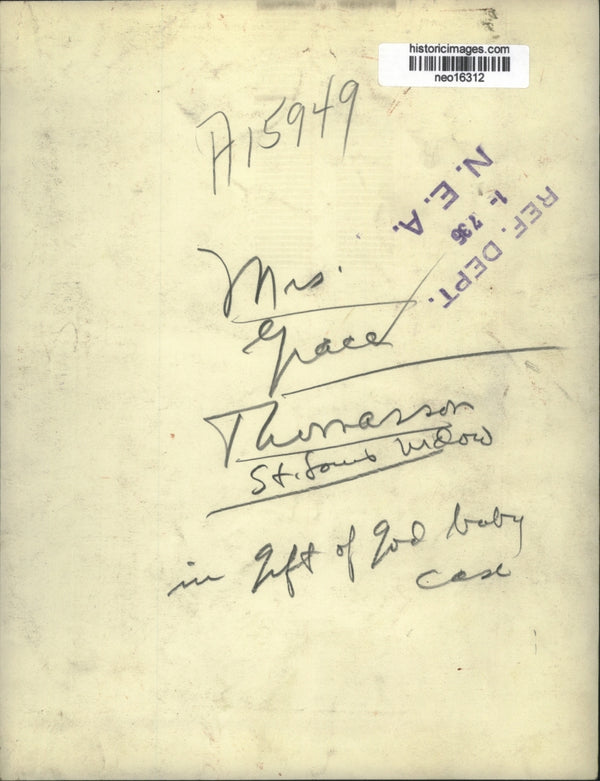 historicimages.com
neo16312
A15949
N. E. A.
1- 736
REF. DEPT.
Mrs.
Grace
Thomasson
St. Louis widow
in gift of god baby
case